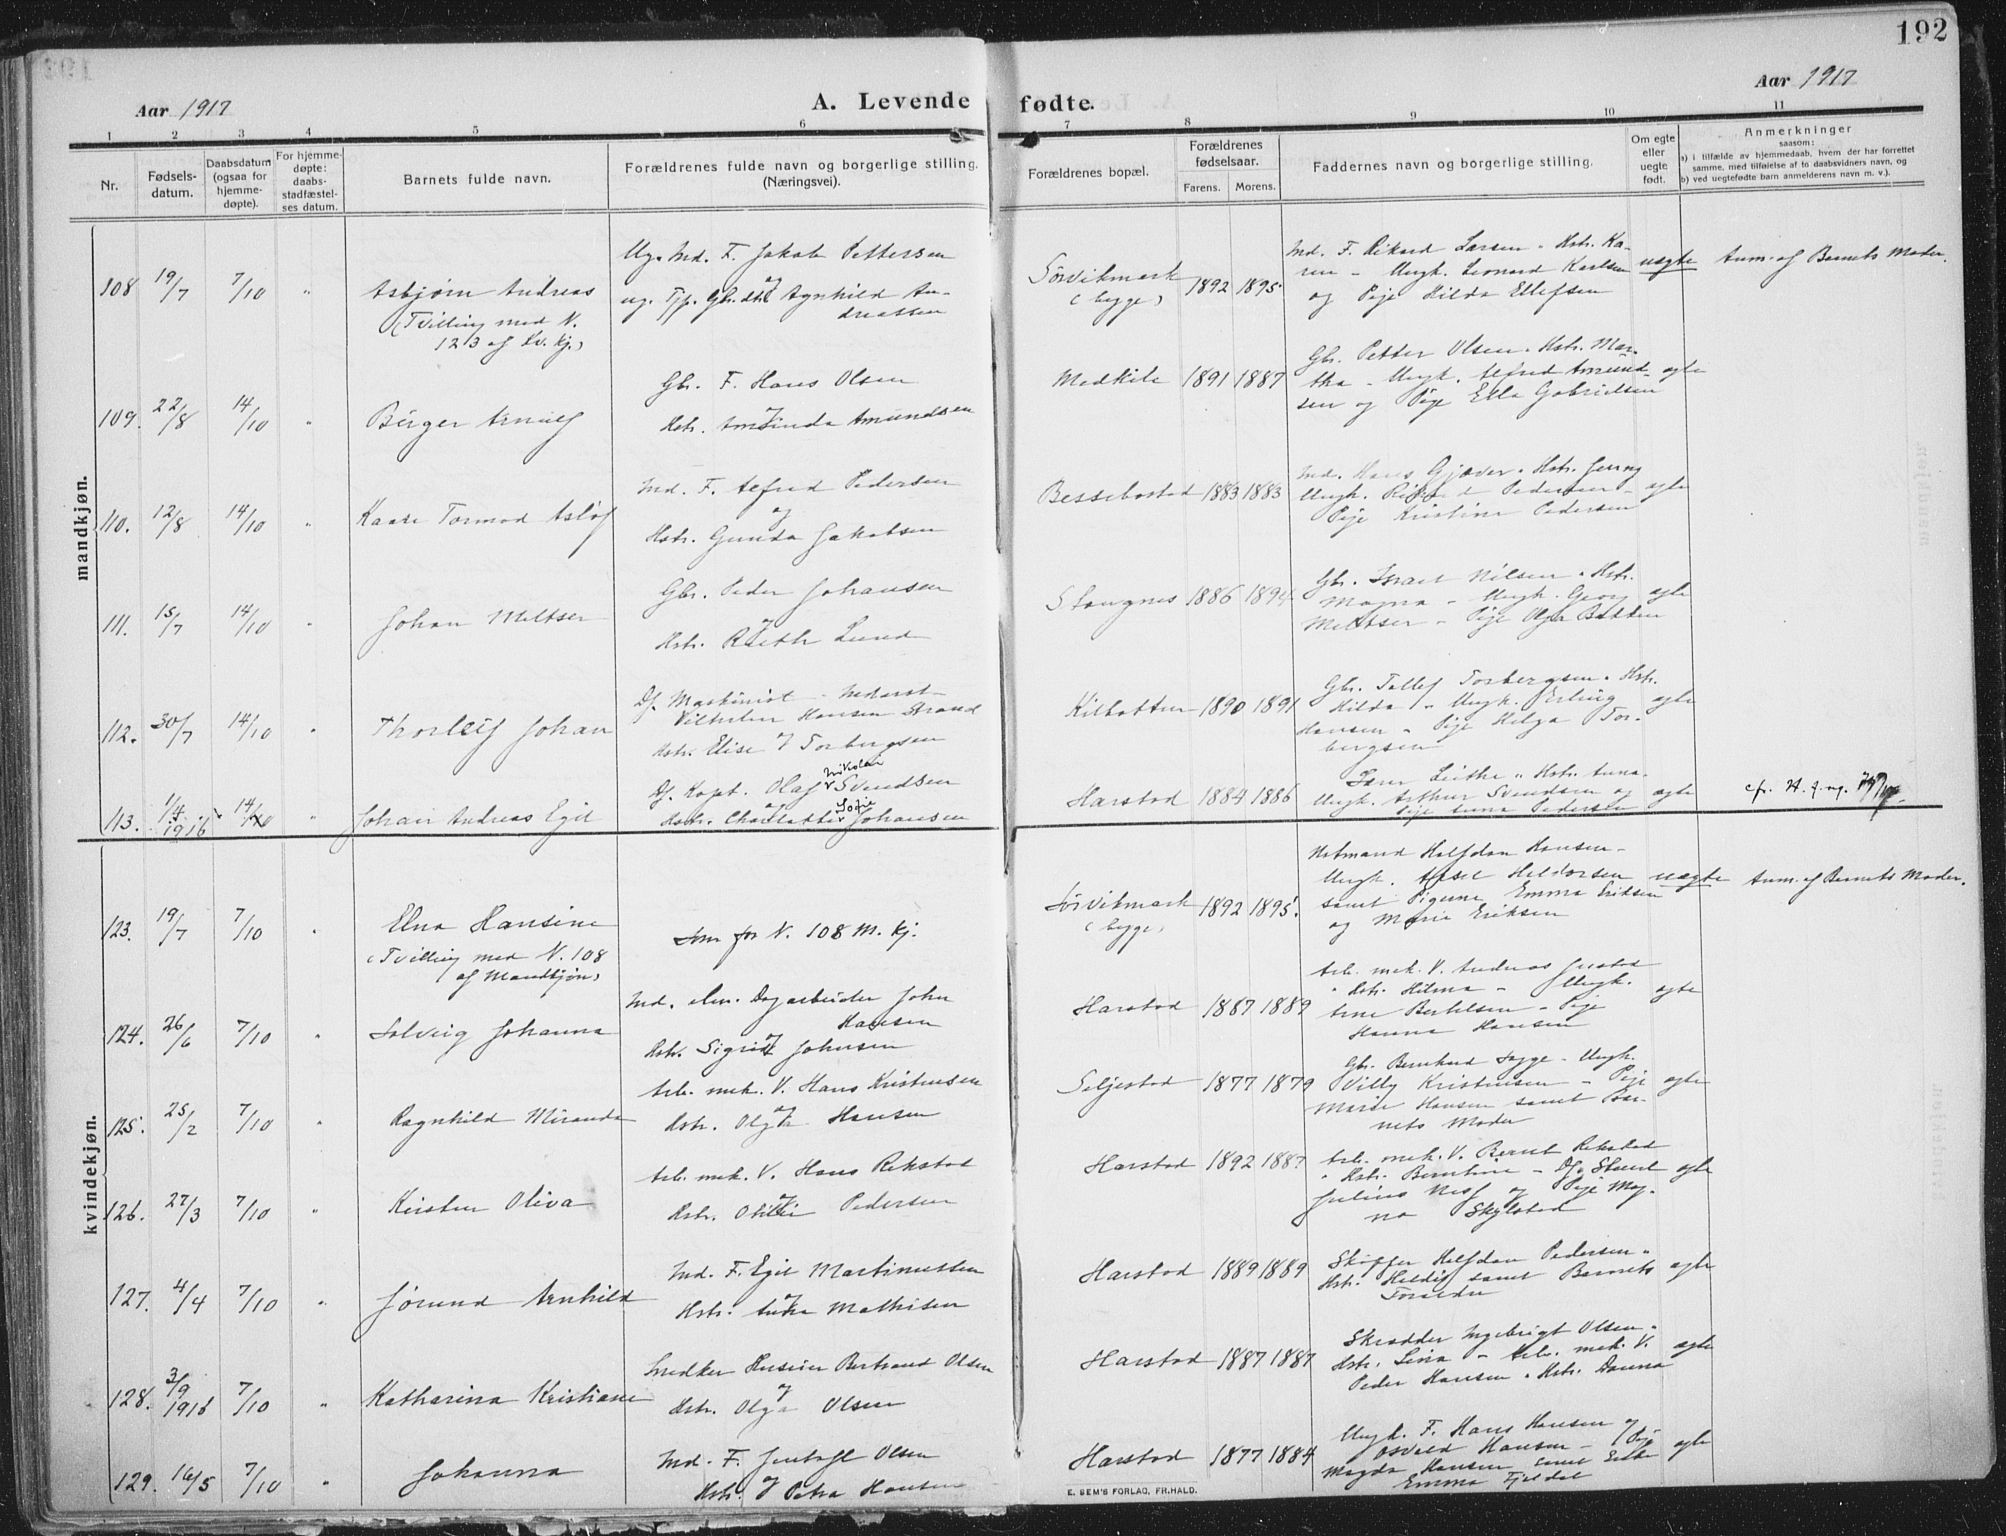 192
Aar 1917
A. Levende fødte.
Aar 1917
1 2 3 4 5 6 7 8 9 10 11
Nr.
Fødsels-
datum.
Daabsdatum
(ogsaa for
hjemme-
døpte).
For hjemme-
døpte:
daabs-
stadfæstel-
ses datum.
Barnets fulde navn.
Forældrenes fulde navn og borgerlige stilling.
(Næringsvei).
Forældrenes bopæl.
Forældrenes
fødselsaar.
Farens. Morens.
Faddernes navn og borgerlige stilling.
Om egte
eller
uegte
født.
Anmerkninger
saasom:
a) i tilfælde av hjemmedaab, hvem der har forrettet
samme, med tilføielse af to daabsvidners navn, og
b) ved uegtefødte barn anmelderens navn m. v.).
mandkjøn.
108 19/7 7/10 " Asbjørn Andreas
(Tvilling med N.
123 af Kv. kj.)
Ug. Md. F. Jakob Pettersen
og
ug. Tj. Gbr.dtr. Agnhild An-
dreassen
Sørvikmark
(bygge)
1892 1895
Md. F. Rikard Larsen. Hstr. Ka-
ren - Ungk. Leonard Karlsen
og Pige Hilda Ellefsen
uegte
Anm. af Barnets Moder.
109. 22/8 14/10 " Birger Arnulf
Gbr. F. Hans Olsen
og
Hstr. Amanda Amundsen
Medkile 1891 1887
Gbr. Petter Olsen. Hstr. Mar-
tha - Ungk. Alfred Amund-
sen og Pige Ella Gabrielsen
egte
110. 12/8 14/10 " Kaare Tormod Asløf
Md. F. Alfred Pedersen
og
Hstr. Gunda Jakobsen
Bessebostad 1883 1883
Md. Hans Gjæver. Hstr. Jenny
Ungk. Rikard Pedersen -
Pige Kristine Pedersen
egte
111. 15/7 14/10 " Johan Meltser
Gbr. Peder Johansen
og
Hstr. Ruth Lund
Stangnes 1886 1894
Gbr. Israel Nilsen. Hstr.
Magna - Ungk. Georg
Meltser - Pige Olga Bakken
egte
112. 30/7 14/10 " Thorleif Johan
Df. Maskinist
Vilhelm Hansen Strand
og
Hstr. Elise Torbergsen
Kilbotten 1890 1891
Gbr. Tollef Torbergsen. Hstr.
Hilda - Ungk. Erling
Hansen - Pige Helga Tor-
bergsen
egte
113. 1/4 1916 14/10 " Johan Andreas Egil
Df. Kapt. Olaf Nikolai Svendsen
og
Hstr. Charlotte Sofie Johansen
Harstad 1884 1886
Hstr. Anna.
Ungk. Arthur Svendsen og
Pige Anna Pedersen
egte
kvindekjøn.
123. 19/7 7/10 " Elna Hansine
(Tvilling med N. 108
af Mandkjøn)
Som for N. 108 M. Kj.
Sørvikmark
(bygge)
1892 1895.
Notmand Halfdan Hansen -
Ungk. Aksel Haldorsen
samt Pigerne Emma Eriksen
og Marie Eriksen
uegte
Anm. af Barnets Moder.
124. 26/6 7/10 " Solveig Johanna
Md. alm. Dagarbeider John
Hansen
og
Hstr. Sigrid Johnsen
Harstad 1887 1889
Arb. mek. V. Andreas
" Hstr. Hilma - Ungk.
Arne Berthelsen - Pige
Hanna Hansen
egte
125. 25/2 7/10 " Ragnhild Miranda
Arb. mek. V. Hans Kristensen
og
Hstr. Olga Hansen
Seljestad 1877 1879
Gbr. Bernhard Sygge - Ungk.
Villy Kristensen - Pige
Marie Hansen samt Bar-
nets Moder
egte
126. 27/3 7/10 " Kirsten Oliva
Arb. mek. V. Hans Rekstad
og
Hstr. Otilie Pedersen
Harstad 1892 1887
Arb. mek. V. Bernt Rekstad
" Hstr. Berntine - Df. Stuert
Julius og Pige Mag-
na Skjelstad
egte
127. 4/4 7/10 " Jørund Arnhild
Md. F. Egil Martinussen
og
Hstr. Anna Mathisen
Harstad 1889 1889
Skipper Halfdan Pedersen "
Hstr. Heldig samt Barnets
Forældre
egte
128. 3/9 1916 7/10 " Katharina Kristiane
Snedker Bertrand Olsen
og
Hstr. Olga Olsen
Harstad 1887 1887
Skrædder Ingebrigt Olsen "
Hstr. Lina - Arb. mek. V.
Peder Hansen " Hstr. Danna
egte
129. 16/5 7/10 Johanna
Md. F. Jentoft Olsen
og
Hstr. Petra Hansen
Harstad 1877 1884
Ungk. F. Hans Hansen og
Osvald Hansen - Pige
Magda Hansen samt Enke
Emma Fjeldal
egte
E. SEM'S FORLAG, FR.HALD.